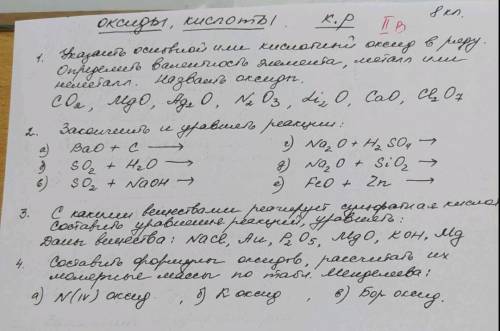 оксиды, кислоты. К.Р II в 8 кл.
1. Указать основной или кислотный оксид в ряду.
Определить валентность элемента, металл или
неметалл. Назвать оксиды.
CO₂, MgO, Ag₂O, N₂O₃, Li₂O, CaO, Cl₂O₇
2. Закончить и уравнять реакции:
а) BaO + C ⟶ г) Na₂O + H₂SO₄ ⟶
б) SO₂ + H₂O ⟶ д) Na₂O + SiO₂ ⟶
в) SO₂ + NaOH ⟶ е) FeO + Zn ⟶
3. С какими веществами реагирует сульфатная кислота
составить уравнение реакций, уравнять:
Даны вещества: NaCl, Au, P₂O₅, MgO, KOH, Mg
4. Составить формулы оксидов, рассчитать их
молярные массы по табл. Менделеева:
а) N(IV) оксид, б) К оксид, в) Бор оксид.